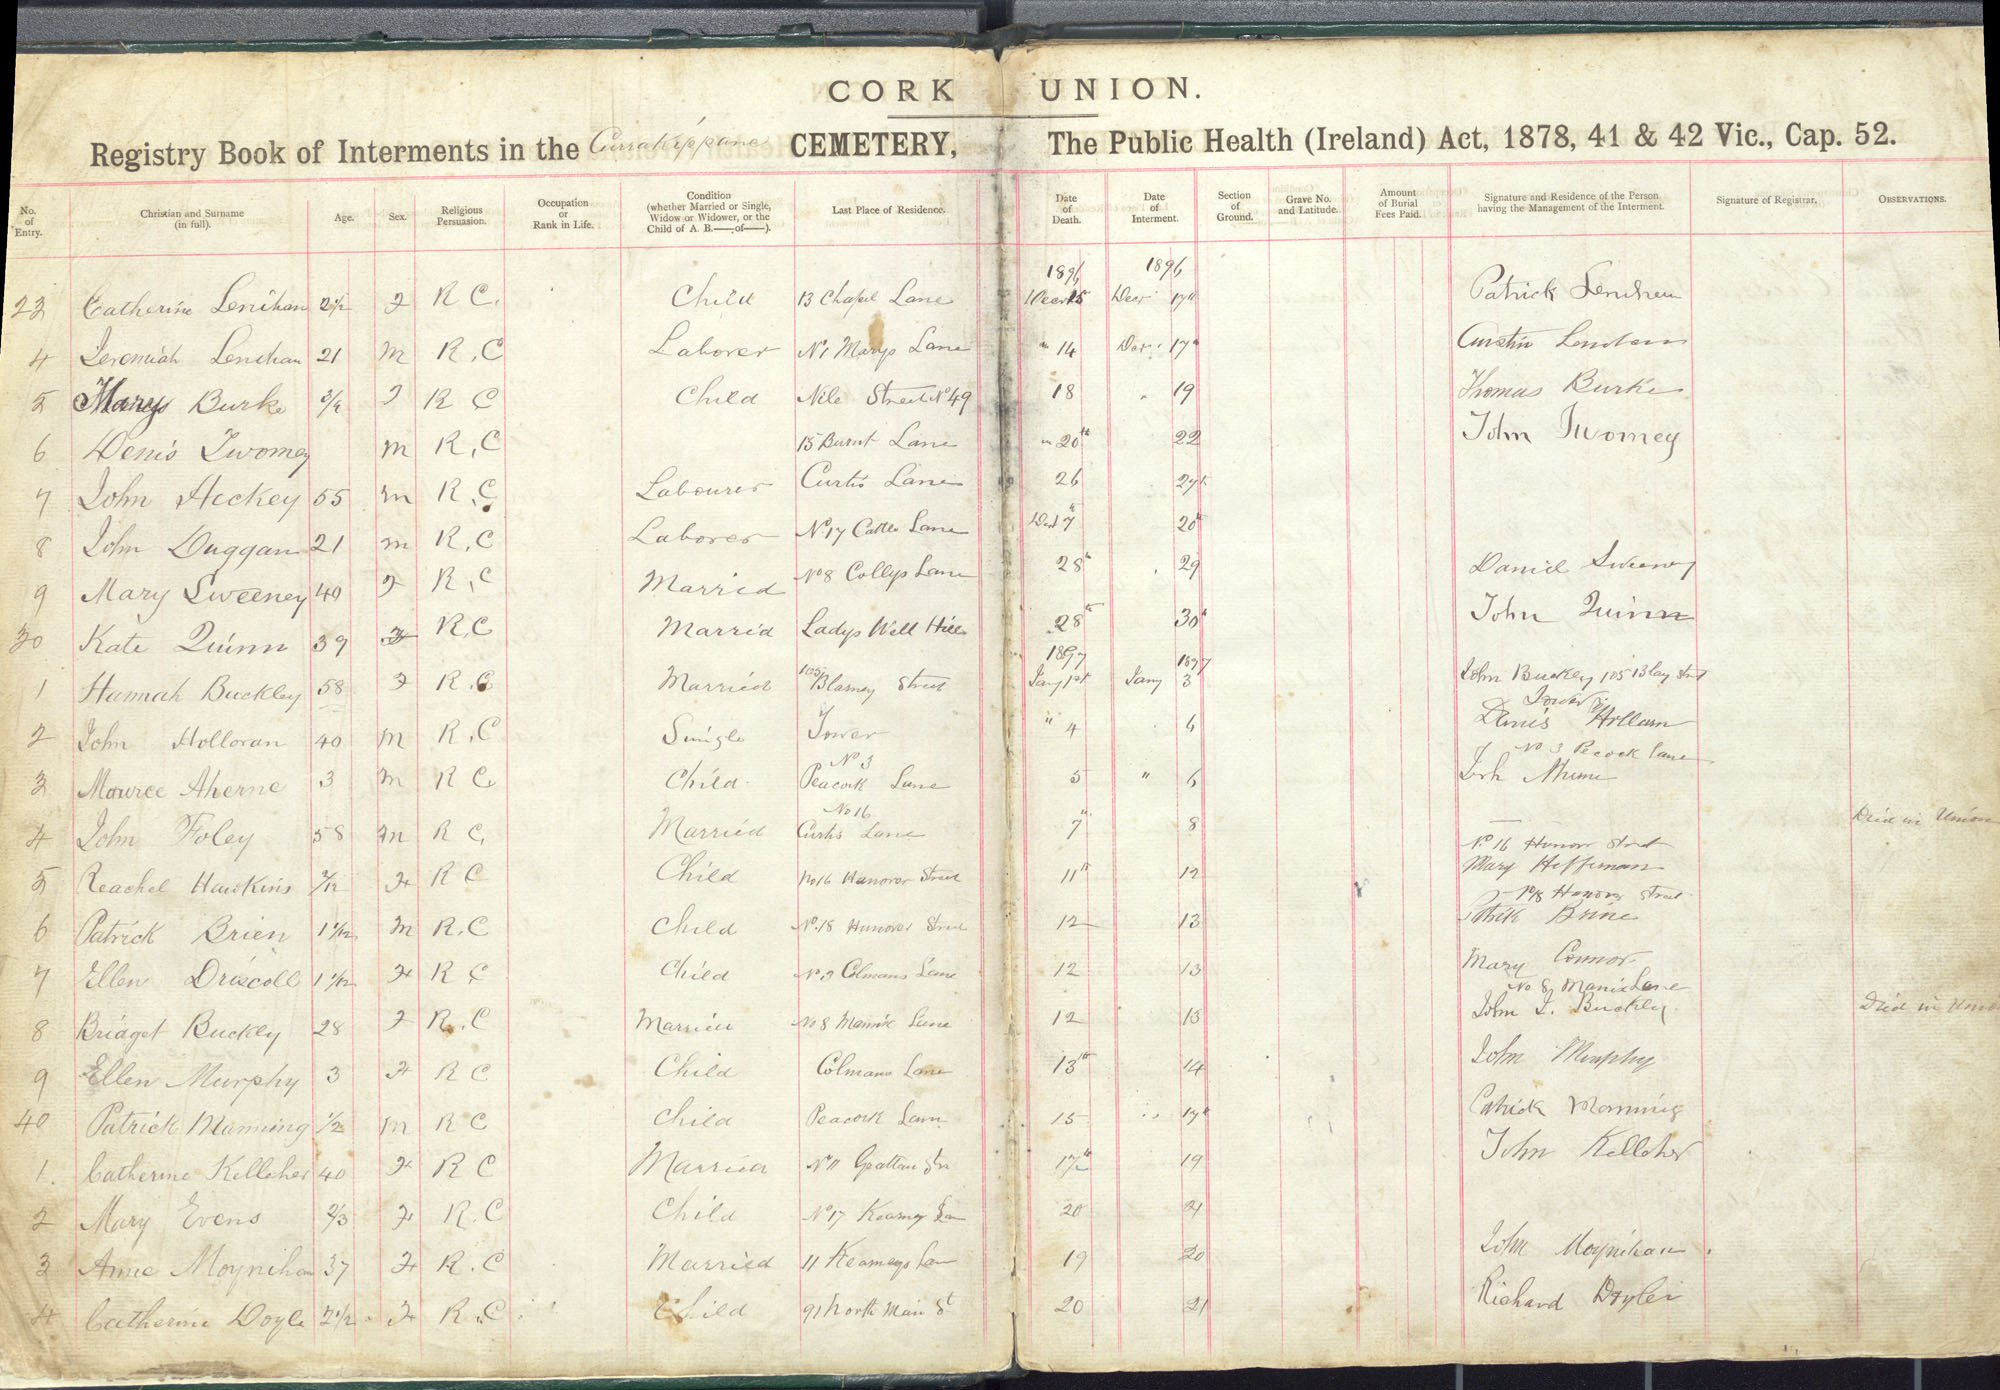 CORK UNION.
Registry Book of Interments in the Currakippane CEMETERY, The Public Health (Ireland) Act, 1878, 41 & 42 Vic., Cap. 52.
No. of Entry. Christian and Surname (in full). Age. Sex. Religious Persuasion. Occupation or Rank in Life. Condition (whether Married or Single, Widow or Widower, or the Child of A. B.—of—). Last Place of Residence. Date of Death. Date of Interment. Section of Ground. Grave No. and Latitude. Amount of Burial Fees Paid. Signature and Residence of the Person having the Management of the Interment. Signature of Registrar. OBSERVATIONS.
1896 1896
23 Catherine Lenihan 2½ F R C. Child 13 Chapel Lane Decr 15 Decr 17" Patrick
4 Jeremiah Lenehan 21 M R, C Laborer No 1 Marys Lane " 14 Dec 17"
5 Mary Burke F R C Child Nile Street No 49 18 19 Thomas Burke
6 Denis Twomey M R, C 15 Burnt Lane " 20th 22 John Twomey
7 John Hickey 55 M R, C Labourer Curtis Lane 26 27
8 John Duggan 21 M R, C Laborer No 17 Lane 7th 20th
9 Mary Sweeney 40 F R, C Married No 8 Collys Lane 28th 29 Daniel Sweeney
30 Kate Quinn 39 F R,C Married Ladys Well Hill 28th 30th John Quinn
1897 1897
1 Hannah Buckley 58 F R. C Married 105 Blarney Street Jany 1st Jany 3 John Buckley 105 Blay Stret
Tower
2 John Holloran 40 M R, C Single Tower " 4 6 Denis
No 3 No 3 Pecock Lane
3 Mouree Aherne 3 M R C. Child Peacock Lane 5 " 6
No 16
4 John Foley 58 M R C, Married Curtis Lane 7" 8 Died in Union
No 16 Hanover Street
5 Reachel Hawkins F R C Child No 16 Hanover Street 11th 12 Mary Heffernan
No 18 Hanover Street
6 Patrick Brien 1 1/12 M R. C Child No. 18 Hanover Street 12 13 Brine
7 Ellen Driscoll 1 1/12 F R C Child Colmans Lane 12 13 Mary Connor
No 8 Lane
8 Bridget Buckley 28 F R. C Married No 8 Lane 12 13 John J. Buckley Died in Union
9 Ellen Murphy 3 F R C Child Colmans Lane 13th 14 John Murphy
40 Patrick Manning ½ M R C Child Peacock Lawn 15 17th Patrick Manning
1. Catherine Kelleher 40 F R C Married No 11 Grattan Str 17th 19 John Kelleher
2 Mary Evens 2/3 F R. C Child No 17 20 21
3 Annie Moynihan 37 F R. C Married 11 19 20 John Moynihan
4 Catherine Doyle 2½ F R. C Child 91 North Main St 20 21 Richard